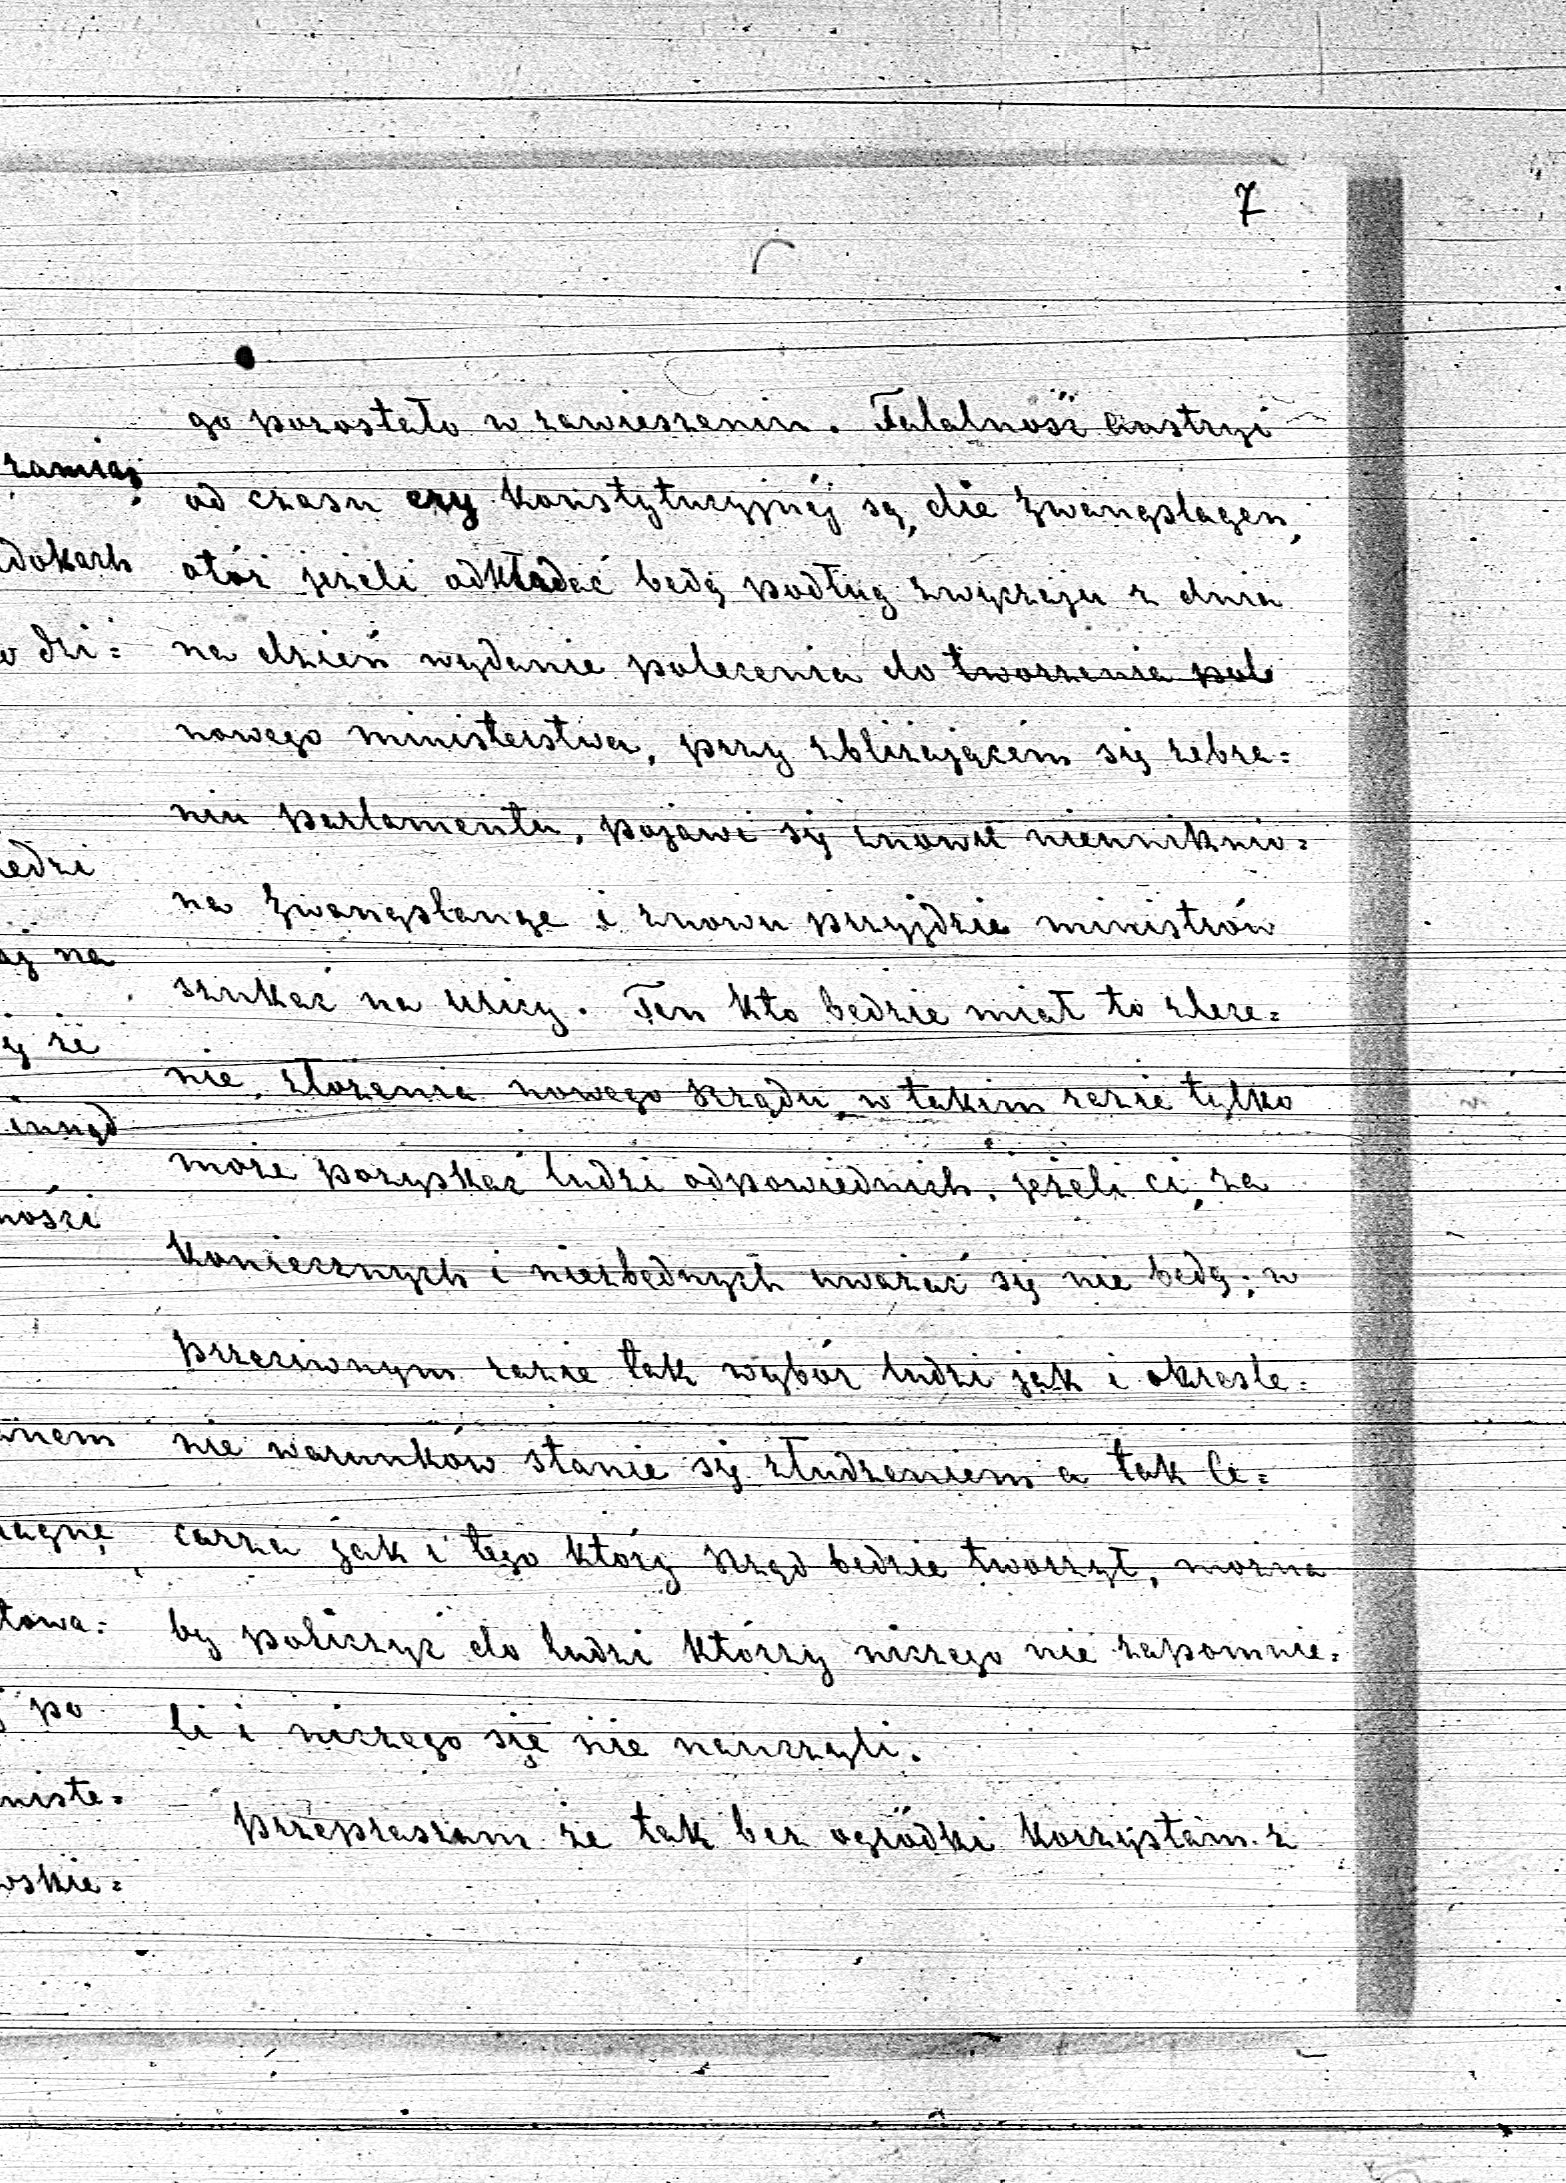 7
go pozostało w zawieszeniu. Fatalność Austryi
od czasu ery konstytucyjnéj są, die Zwangslagen,
otóż jeżeli odkładać będą podług zwyczaju z dnia
na dzień wydanie polecenia do tworzenia pole
nowego ministerstwa, przy zbliżającém się zebra=
niu parlamentu, pojawi się znowu nieuniknio=
na Zwangslage i znowu przyjdzie ministrów
szukać na ulicy. Ten kto będzie miał to zlece=
nie, złożenia nowego rządu, w takim razie tylko
może pozyskać ludzi odpowiednich, jeżeli ci, za
koniecznych i niezbędnych uważać się nie będą; w
przeciwnym razie tak wybór ludzi jak i określe=
nie warunków stanie się złudzeniem a tak Ce=
carza jak i tego który rząd będzie tworzył, można
by policzyć do ludzi którzy niczego nie zapomnie=
li i niczego się nie nauczyli.
Przepraszam że tak bez ogródki korzystam z
zamias
dokach
w dzi=
iedzi
na
że
innąd
ności
aniem
ragnę
towa=
po
niste=
wskie=